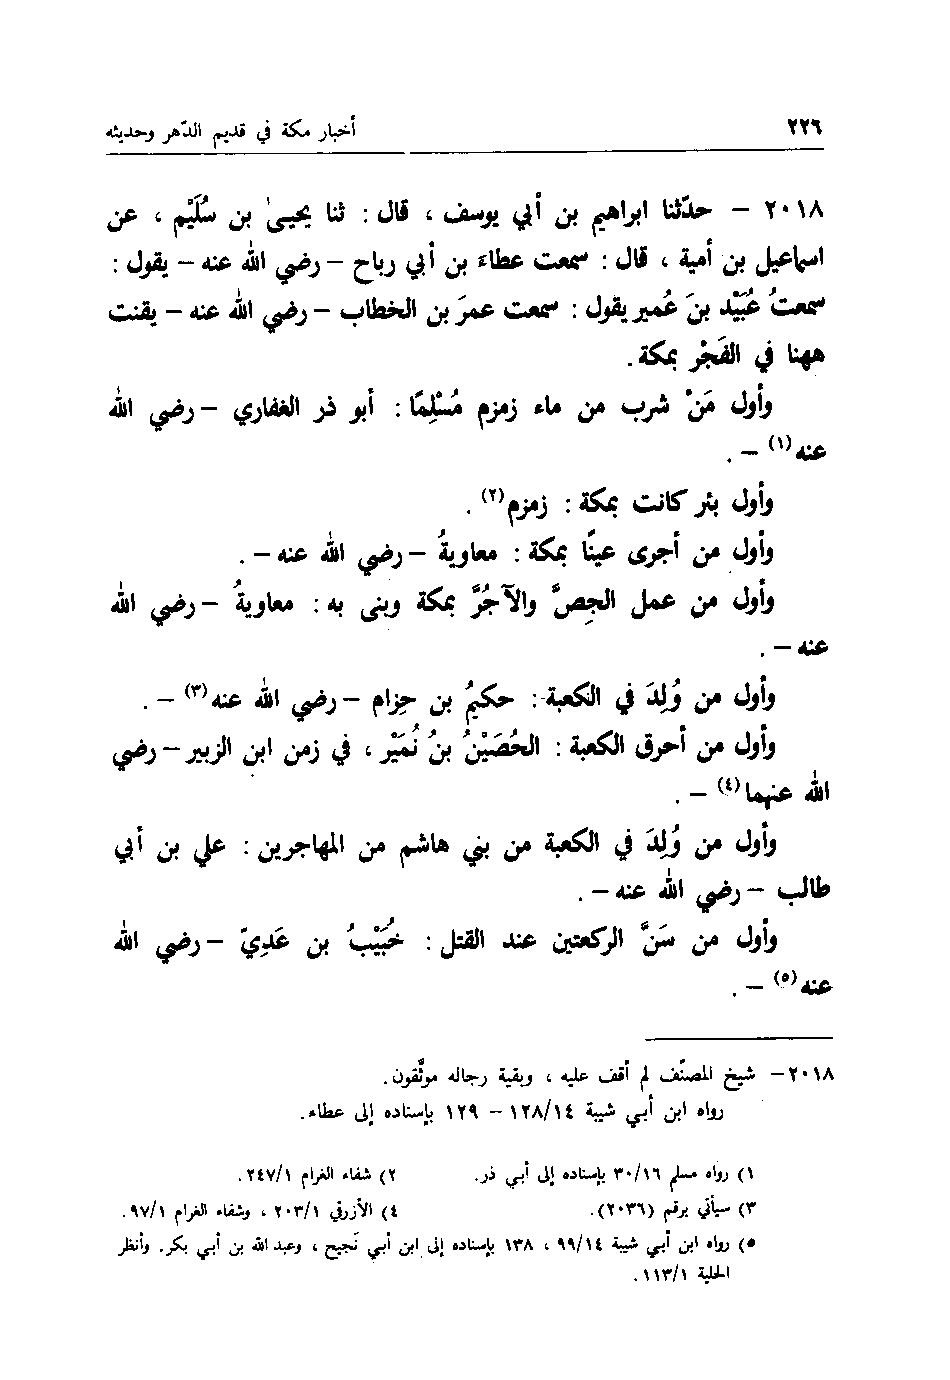 ٢٢٦
أخبار مكة في قديم الدّهر وحديثه
٢٠١٨ – حدّثنا ابراهيم بن أبي يوسف ، قال : ثنا يحيىٰ بن سُلَيْم ، عن
اسماعيل بن أمية ، قال : سمعت عطاء بن أبي رباح – رضي الله عنه – يقول :
سمعتُ عُبَيْد بنَ عُمير يقول : سمعت عمرَ بن الخطاب – رضي الله عنه – يقنت
ههنا في الفَجْر بمكة .
وأول مَنْ شرب من ماء زمزم مُسْلِمًا : أبو ذر الغفاري – رضي الله
عنه (١) – .
وأول بئر كانت بمكة : زمزم (٢) .
وأول من أجرى عينًا بمكة : معاويةُ – رضي الله عنه – .
وأول من عمل الجِصَّ والآجُرَّ بمكة وبنى به : معاويةُ – رضي الله
عنه – .
وأول من وُلِدَ في الكعبة : حكيمُ بن حِزام – رضي الله عنه (٣) – .
وأول من أحرق الكعبة : الحُصَيْنُ بنُ نُمَيْر ، في زمن ابن الزبير – رضي
الله عنهما (٤) – .
وأول من وُلِدَ في الكعبة من بني هاشم من المهاجرين : علي بن أبي
طالب – رضي الله عنه – .
وأول من سَنَّ الركعتين عند القتل : خُبَيْبُ بن عَدِيّ – رضي الله
عنه (٥) – .
٢٠١٨ – شيخ المصنّف لم أقف عليه ، وبقية رجاله موثّقون .
رواه ابن أبي شيبة ١٢٨/١٤ – ١٢٩ بإسناده إلى عطاء .
١) رواه مسلم ٣٠/١٦ بإسناده إلى أبي ذر .
٢) شفاء الغرام ٢٤٧/١ .
٣) سيأتي برقم (٢٠٣٦) .
٤) الأزرقي ٢٠٣/١ ، وشفاء الغرام ٩٧/١ .
٥) رواه ابن أبي شيبة ٩٩/١٤ ، ١٣٨ بإسناده إلى ابن أبي نَجيح ، وعبد الله بن أبي بكر . وأنظر
الحلية ١١٣/١ .